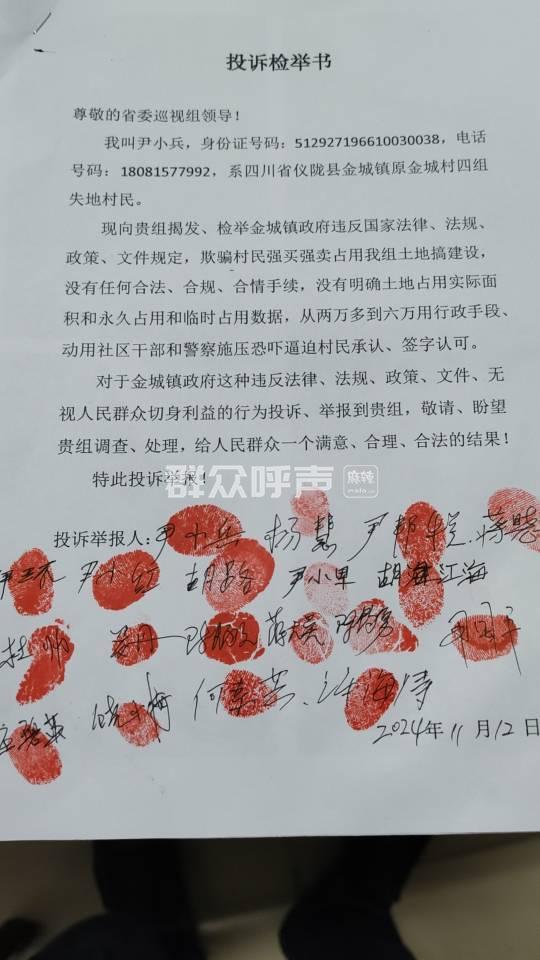 投诉检举书
尊敬的省委巡视组领导！
我叫尹小兵，身份证号码：512927196610030038，电话
号码：18081577992，系四川省仪陇县金城镇原金城村四组
失地村民。
现向贵组揭发、检举金城镇政府违反国家法律、法规、
政策、文件规定，欺骗村民强买强卖占用我组土地搞建设，
没有任何合法、合规、合情手续，没有明确土地占用实际面
积和永久占用和临时占用数据，从两万多到六万用行政手段、
动用社区干部和警察施压恐吓逼迫村民承认、签字认可。
对于金城镇政府这种违反法律、法规、政策、文件、无
视人民群众切身利益的行为投诉、举报到贵组，敬请、盼望
贵组调查、处理，给人民群众一个满意、合理、合法的结果！
特此投诉举报！
群众呼声 麻辣
投诉举报人：尹小兵 杨慧
尹小红 尹小军 江海
2024年11月12日